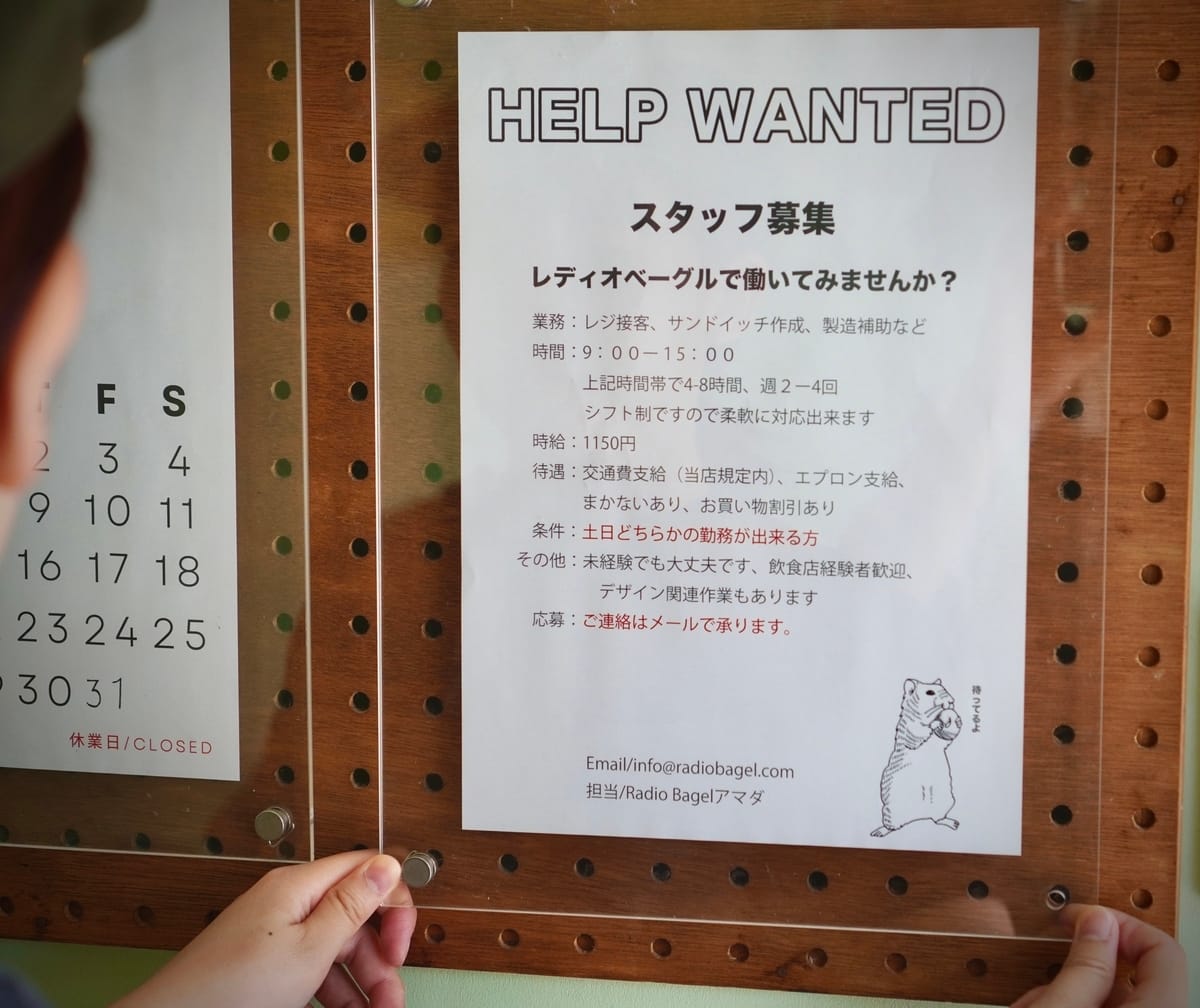 HELP WANTED
スタッフ募集
レディオベーグルで働いてみませんか？
業務：レジ接客、サンドイッチ作成、製造補助など
時間：９：００ー１５：００
上記時間帯で4-8時間、週２ー4回
シフト制ですので柔軟に対応出来ます
時給：1150円
待遇：交通費支給（当店規定内）、エプロン支給、
まかないあり、お買い物割引あり
条件：土日どちらかの勤務が出来る方
その他：未経験でも大丈夫です、飲食店経験者歓迎、
デザイン関連作業もあります
応募：ご連絡はメールで承ります。
待ってるよ
Email/info@radiobagel.com
担当/Radio Bagelアマダ
F S
2 3 4
9 10 11
16 17 18
23 24 25
30 31
休業日/CLOSED